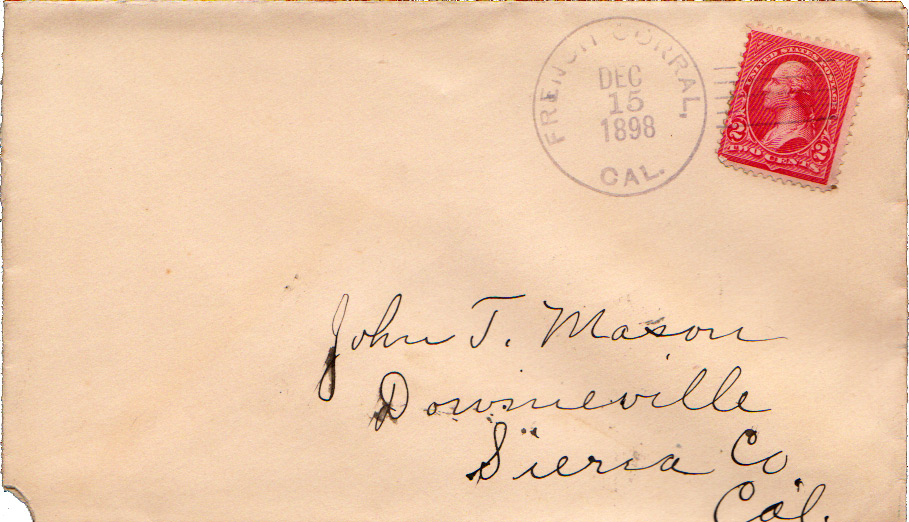 FRENCH CORRAL,
DEC
15
1898
CAL.
UNITED STATES POSTAGE
2 2
TWO CENTS
John T. Mason
Downieville
Sierra Co
Cal.